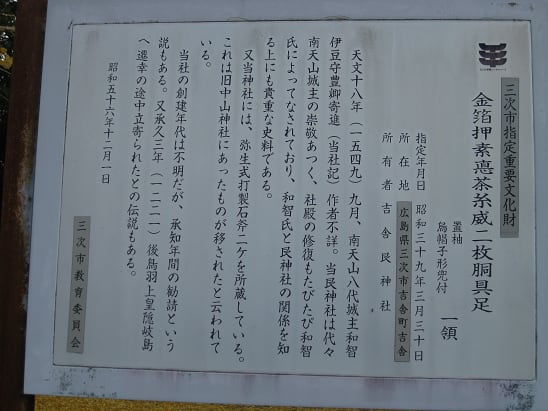 三次市指定重要文化財
金箔押素懸茶糸威二枚胴具足
置袖
烏帽子形兜付
一領
指定年月日 昭和三十九年三月三十日
所在地 広島県三次市吉舎町吉舎
所有者 吉舎艮神社
天文十八年(一五四九)九月、南天山八代城主和智
伊豆守豊郷寄進(当社記)作者不詳。当艮神社は代々
南天山城主の崇敬あつく、社殿の修復もたびたび和智
氏によってなされており、和智氏と艮神社の関係を知
る上にも貴重な史料である。
又当神社には、弥生式打製石斧二ケを所蔵している。
これは旧中山神社にあったものが移されたと云われて
いる。
当社の創建年代は不明だが、承知年間の勧請という
説もある。又承久三年(一二二一)後鳥羽上皇隠岐島
へ遷幸の途中立寄られたとの伝説もある。
昭和五十六年十二月一日
三次市教育委員会